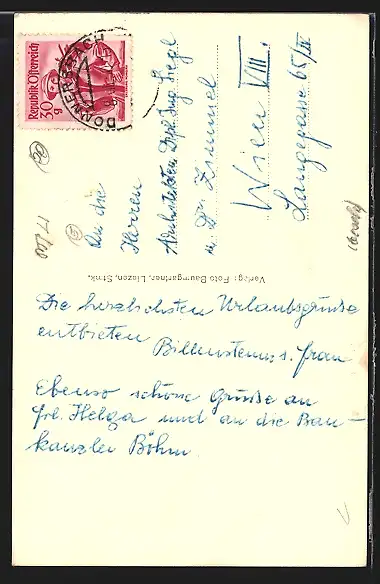 Republik Österreich
30 g
DONNERSBACH
An die
Herren
Architekten Dipl. Ing. Siegl
u. Dr. Zimmel
Wien VIII.
Langegasse 65/
Verlag: Foto Baumgartner, Liezen, Stmk.
Die herzlichsten Urlaubsgrüsse
entbieten
u. Frau
Ebenso schöne Grüsse an
Frl. Helga und an die Bau-
kanzlei Böhm